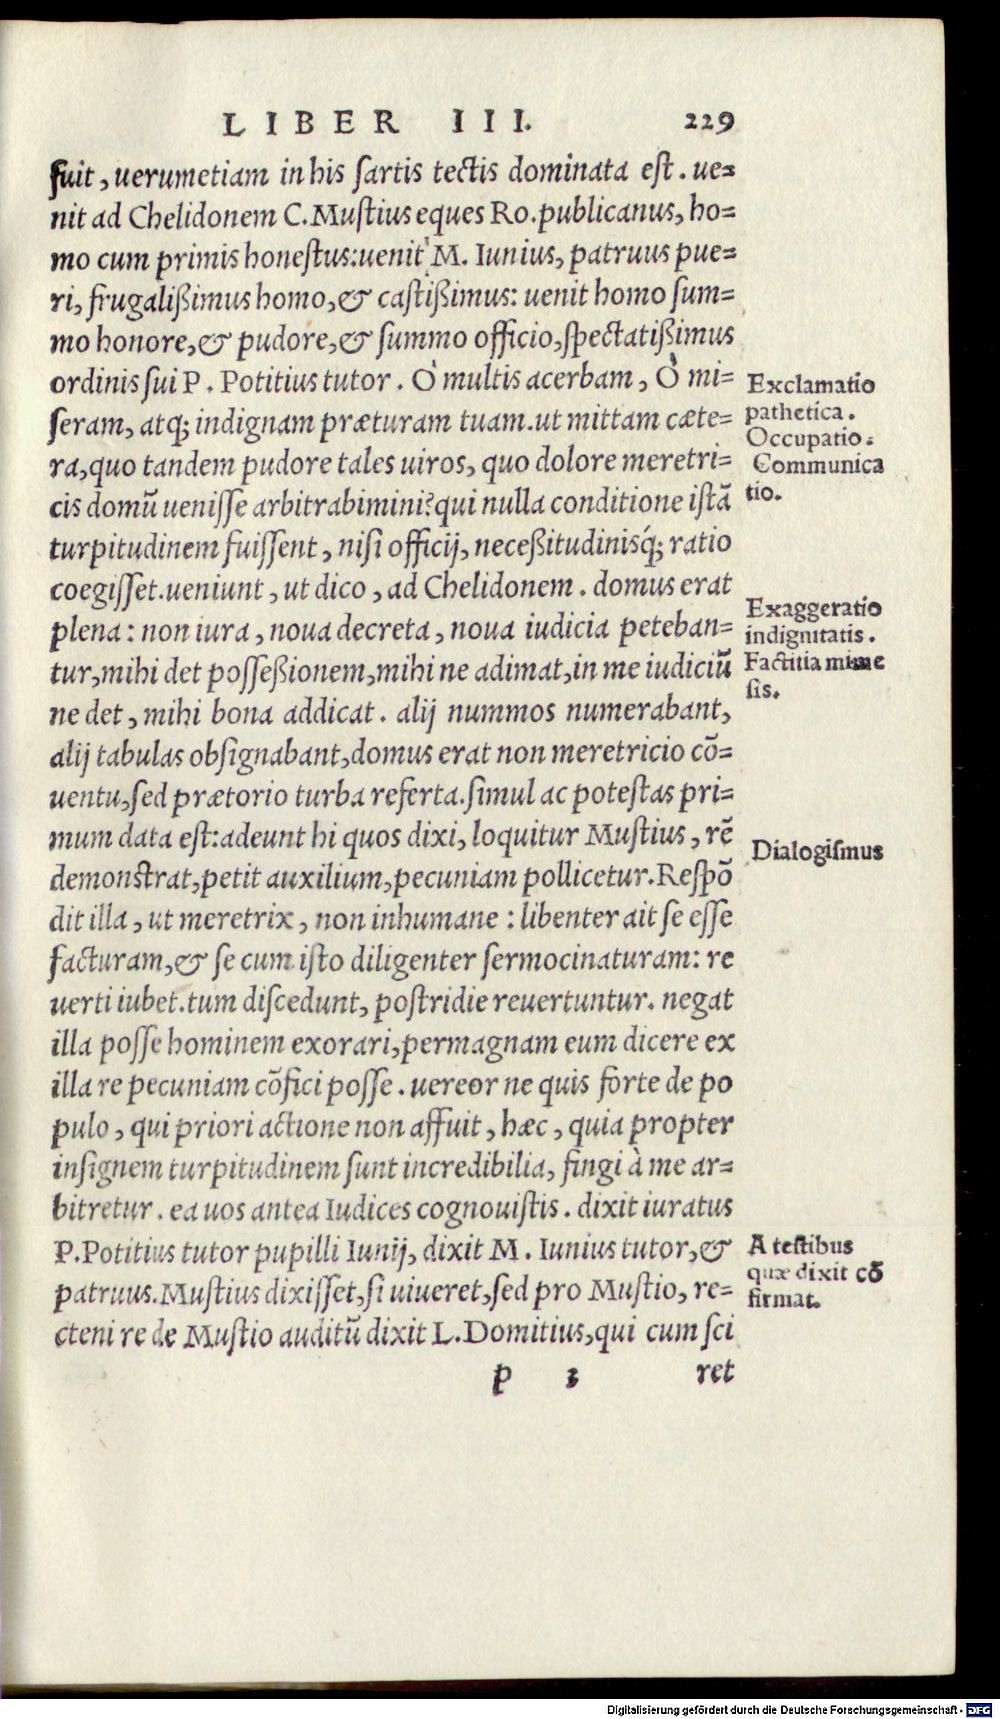 LIBER III. 229
fuit, uerumetiam in his sartis tectis dominata est. ue=
nit ad Chelidonem C. Mustius eques Ro. publicanus, ho=
mo cum primis honestus: uenit M. Iunius, patruus pue=
ri, frugalißimus homo, & castißimus: uenit homo sum=
mo honore, & pudore, & summo officio, spectatißimus
ordinis sui P. Potitius tutor. Ò multis acerbam, Ò mi=
seram, atq; indignam præturam tuam. ut mittam cæte=
ra, quo tandem pudore tales uiros, quo dolore meretri=
cis domũ uenisse arbitrabimini? qui nulla conditione istã
turpitudinem fuissent, nisi officij, neceßitudinisq́; ratio
coegisset. ueniunt, ut dico, ad Chelidonem. domus erat
plena: non iura, noua decreta, noua iudicia peteban=
tur, mihi det posseßionem, mihi ne adimat, in me iudiciũ
ne det, mihi bona addicat. alij nummos numerabant,
alij tabulas obsignabant, domus erat non meretricio cõ=
uentu, sed prætorio turba referta. simul ac potestas pri=
mum data est: adeunt hi quos dixi, loquitur Mustius, rẽ
demonstrat, petit auxilium, pecuniam pollicetur. Respõ
dit illa, ut meretrix, non inhumane: libenter ait se esse
facturam, & se cum isto diligenter sermocinaturam: re
uerti iubet. tum discedunt, postridie reuertuntur. negat
illa posse hominem exorari, permagnam eum dicere ex
illa re pecuniam cõfici posse. uereor ne quis forte de po
pulo, qui priori actione non affuit, hæc, quia propter
insignem turpitudinem sunt incredibilia, fingi à me ar=
bitretur. ea uos antea Iudices cognouistis. dixit iuratus
P. Potitius tutor pupilli Iunij, dixit M. Iunius tutor, &
patruus. Mustius dixisset, si uiueret, sed pro Mustio, re=
cteni re de Mustio auditũ dixit L. Domitius, qui cum sci
p 3 ret
Exclamatio
pathetica.
Occupatio.
Communica
tio.
Exaggeratio
indignitatis.
Factitia mime
sis.
Dialogismus
A testibus
quæ dixit cõ
firmat.
Digitalisierung gefördert durch die Deutsche Forschungsgemeinschaft - DFG